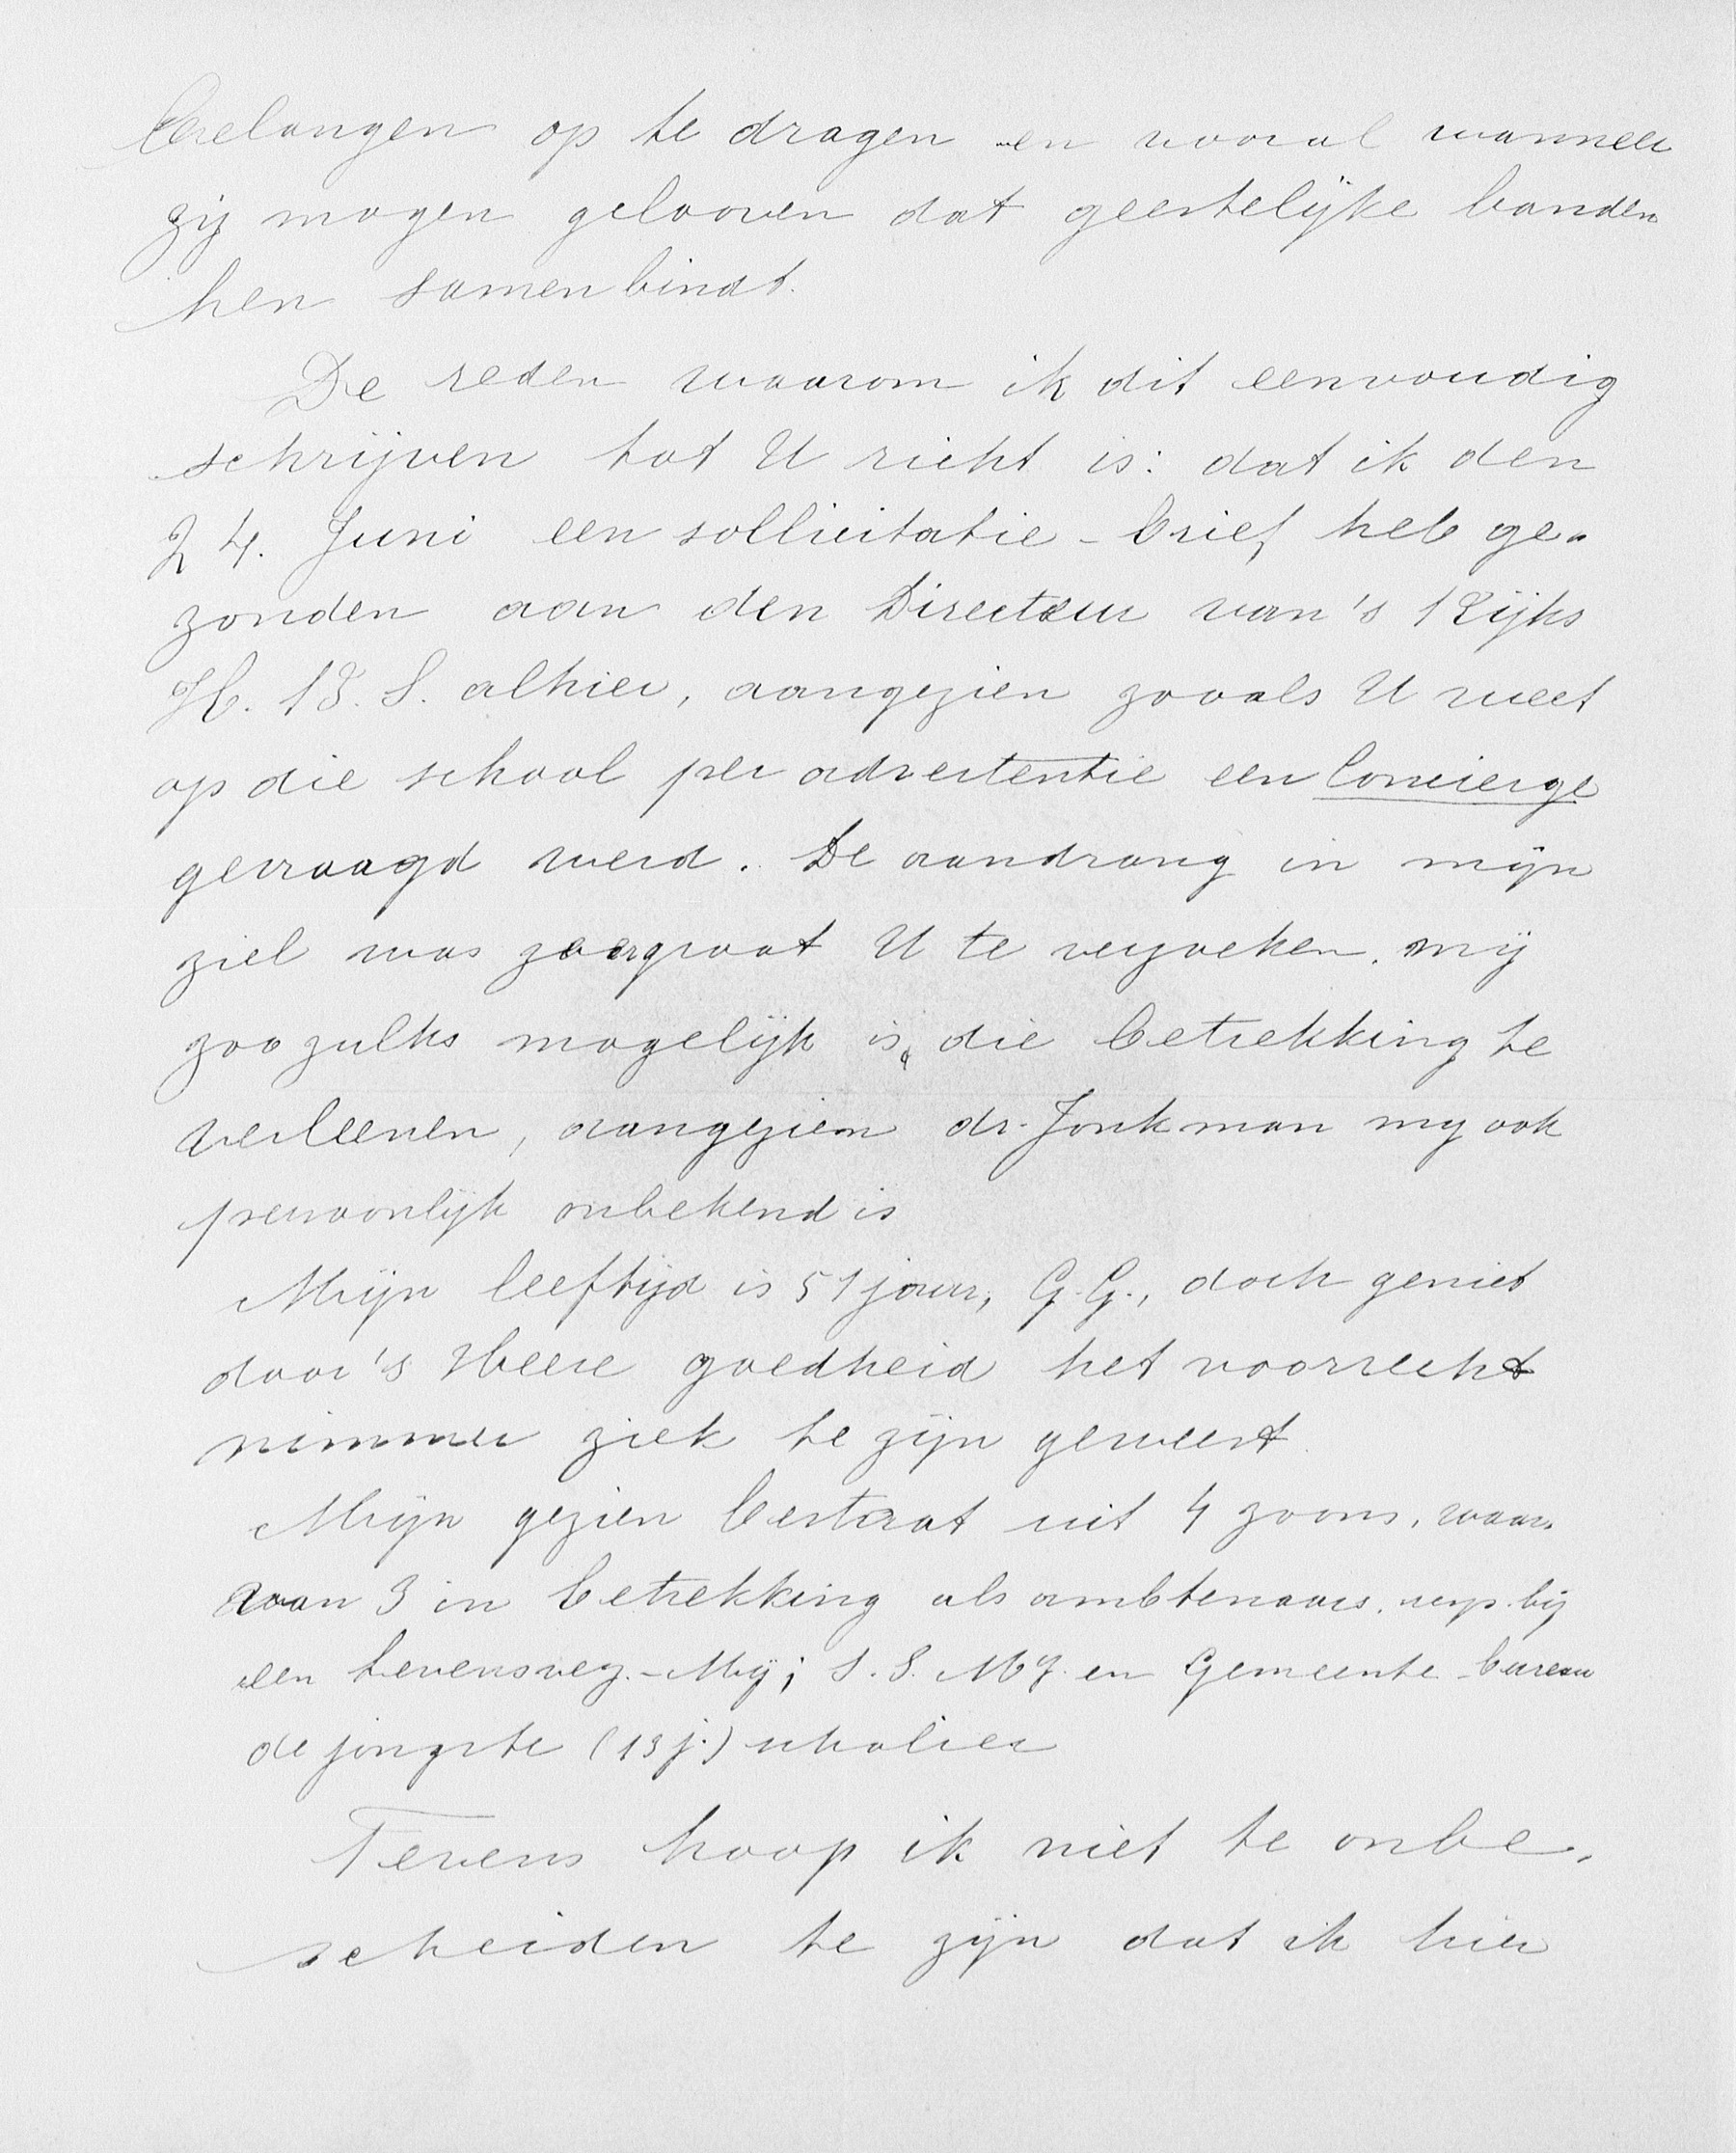 belangen op te dragen en vooral wanneer
zij mogen gelooven dat geestelijke banden
hen samenbindt.
De reden waarom ik dit eenvoudig
schrijven tot U richt is: dat ik den
24. Juni een sollicitatie-brief heb ge-
zonden aan den Directeur van 's Rijks
H. B. S. alhier, aangezien zooals U weet
op die school per advertentie een Concierge
gevraagd werd. De aandrang in mijn
ziel was zeer groot U te verzoeken, mij
zoo zulks mogelijk is, die betrekking te
verleenen, aangezien dr. Jonkman mij ook
persoonlijk onbekend is
Mijn leeftijd is 51 jaar, G. G., doch geniet
door 's Heere goedheid het voorrecht
nimmer ziek te zijn geweest.
Mijn gezien bestaat uit 4 zoons, waar-
van 3 in betrekking als ambtenaars, resp. bij
een Levensverz.-Mij; S. S. Mij. en Gemeente-bureau
de jongste (13 j.) scholier
Tevens hoop ik niet te onbe-
scheiden te zijn dat ik hier